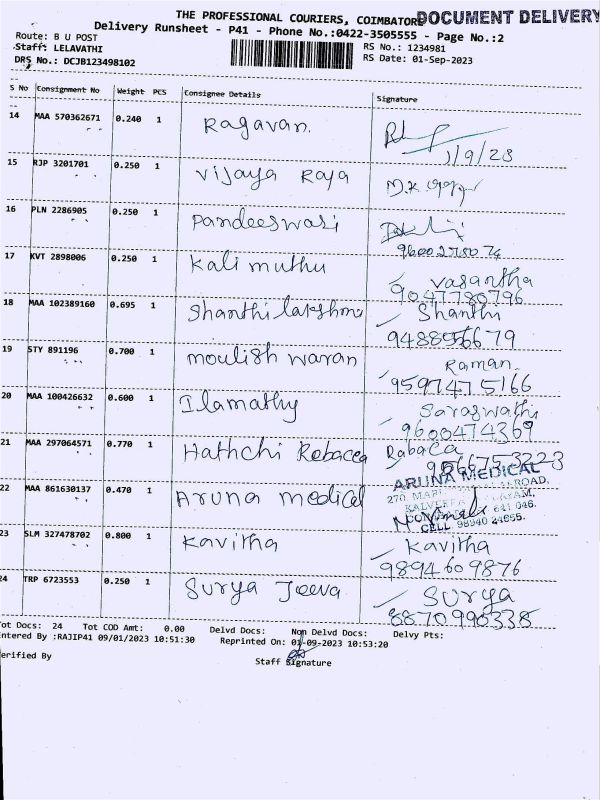 THE PROFESSIONAL COURIERS, COIMBATORE
DOCUMENT DELIVERY
Delivery Runsheet - P41 - Phone No.:0422-3505555 - Page No.:2
Route: B U POST
Staff: LELAVATHI
DRS No.: DCJB123498102
RS No.: 1234981
RS Date: 01-Sep-2023
S No Consignment No Weight PCS Consignee Details Signature
14 MAA 570362671 0.240 1 Ragavan.
1/9/23
15 RJP 3201701 0.250 1 Vijaya Raja M.K
16 PLN 2286905 0.250 1 Pandeeswari
9600278074
17 KVT 2898006 0.250 1 Kali muthu Vasantha
9047780796
18 MAA 102389160 0.695 1 Shanthi lakshmi Shanthi
9488956679
19 STY 891196 0.700 1 moulish waran Raman.
9597475166
20 MAA 100426632 0.600 1 Ilamathy Saraswathi
9600474369
21 MAA 297064571 0.770 1 Hathchi Rebacca Rabaca
9566753223
22 MAA 861630137 0.470 1 Aruna medical ARUNA MEDICAL
270, ROAD,
641 046.
CELL 98940 24655.
23 SLM 327478702 0.800 1 Kavitha Kavitha
9894609876
24 TRP 6723553 0.250 1 Surya Jeeva Surya
8870990338
Tot Docs: 24 Tot COD Amt: 0.00 Delvd Docs: Non Delvd Docs: Delvy Pts:
Entered By :RAJIP41 09/01/2023 10:51:30 Reprinted On: 01-09-2023 10:53:20
Verified By Staff Signature